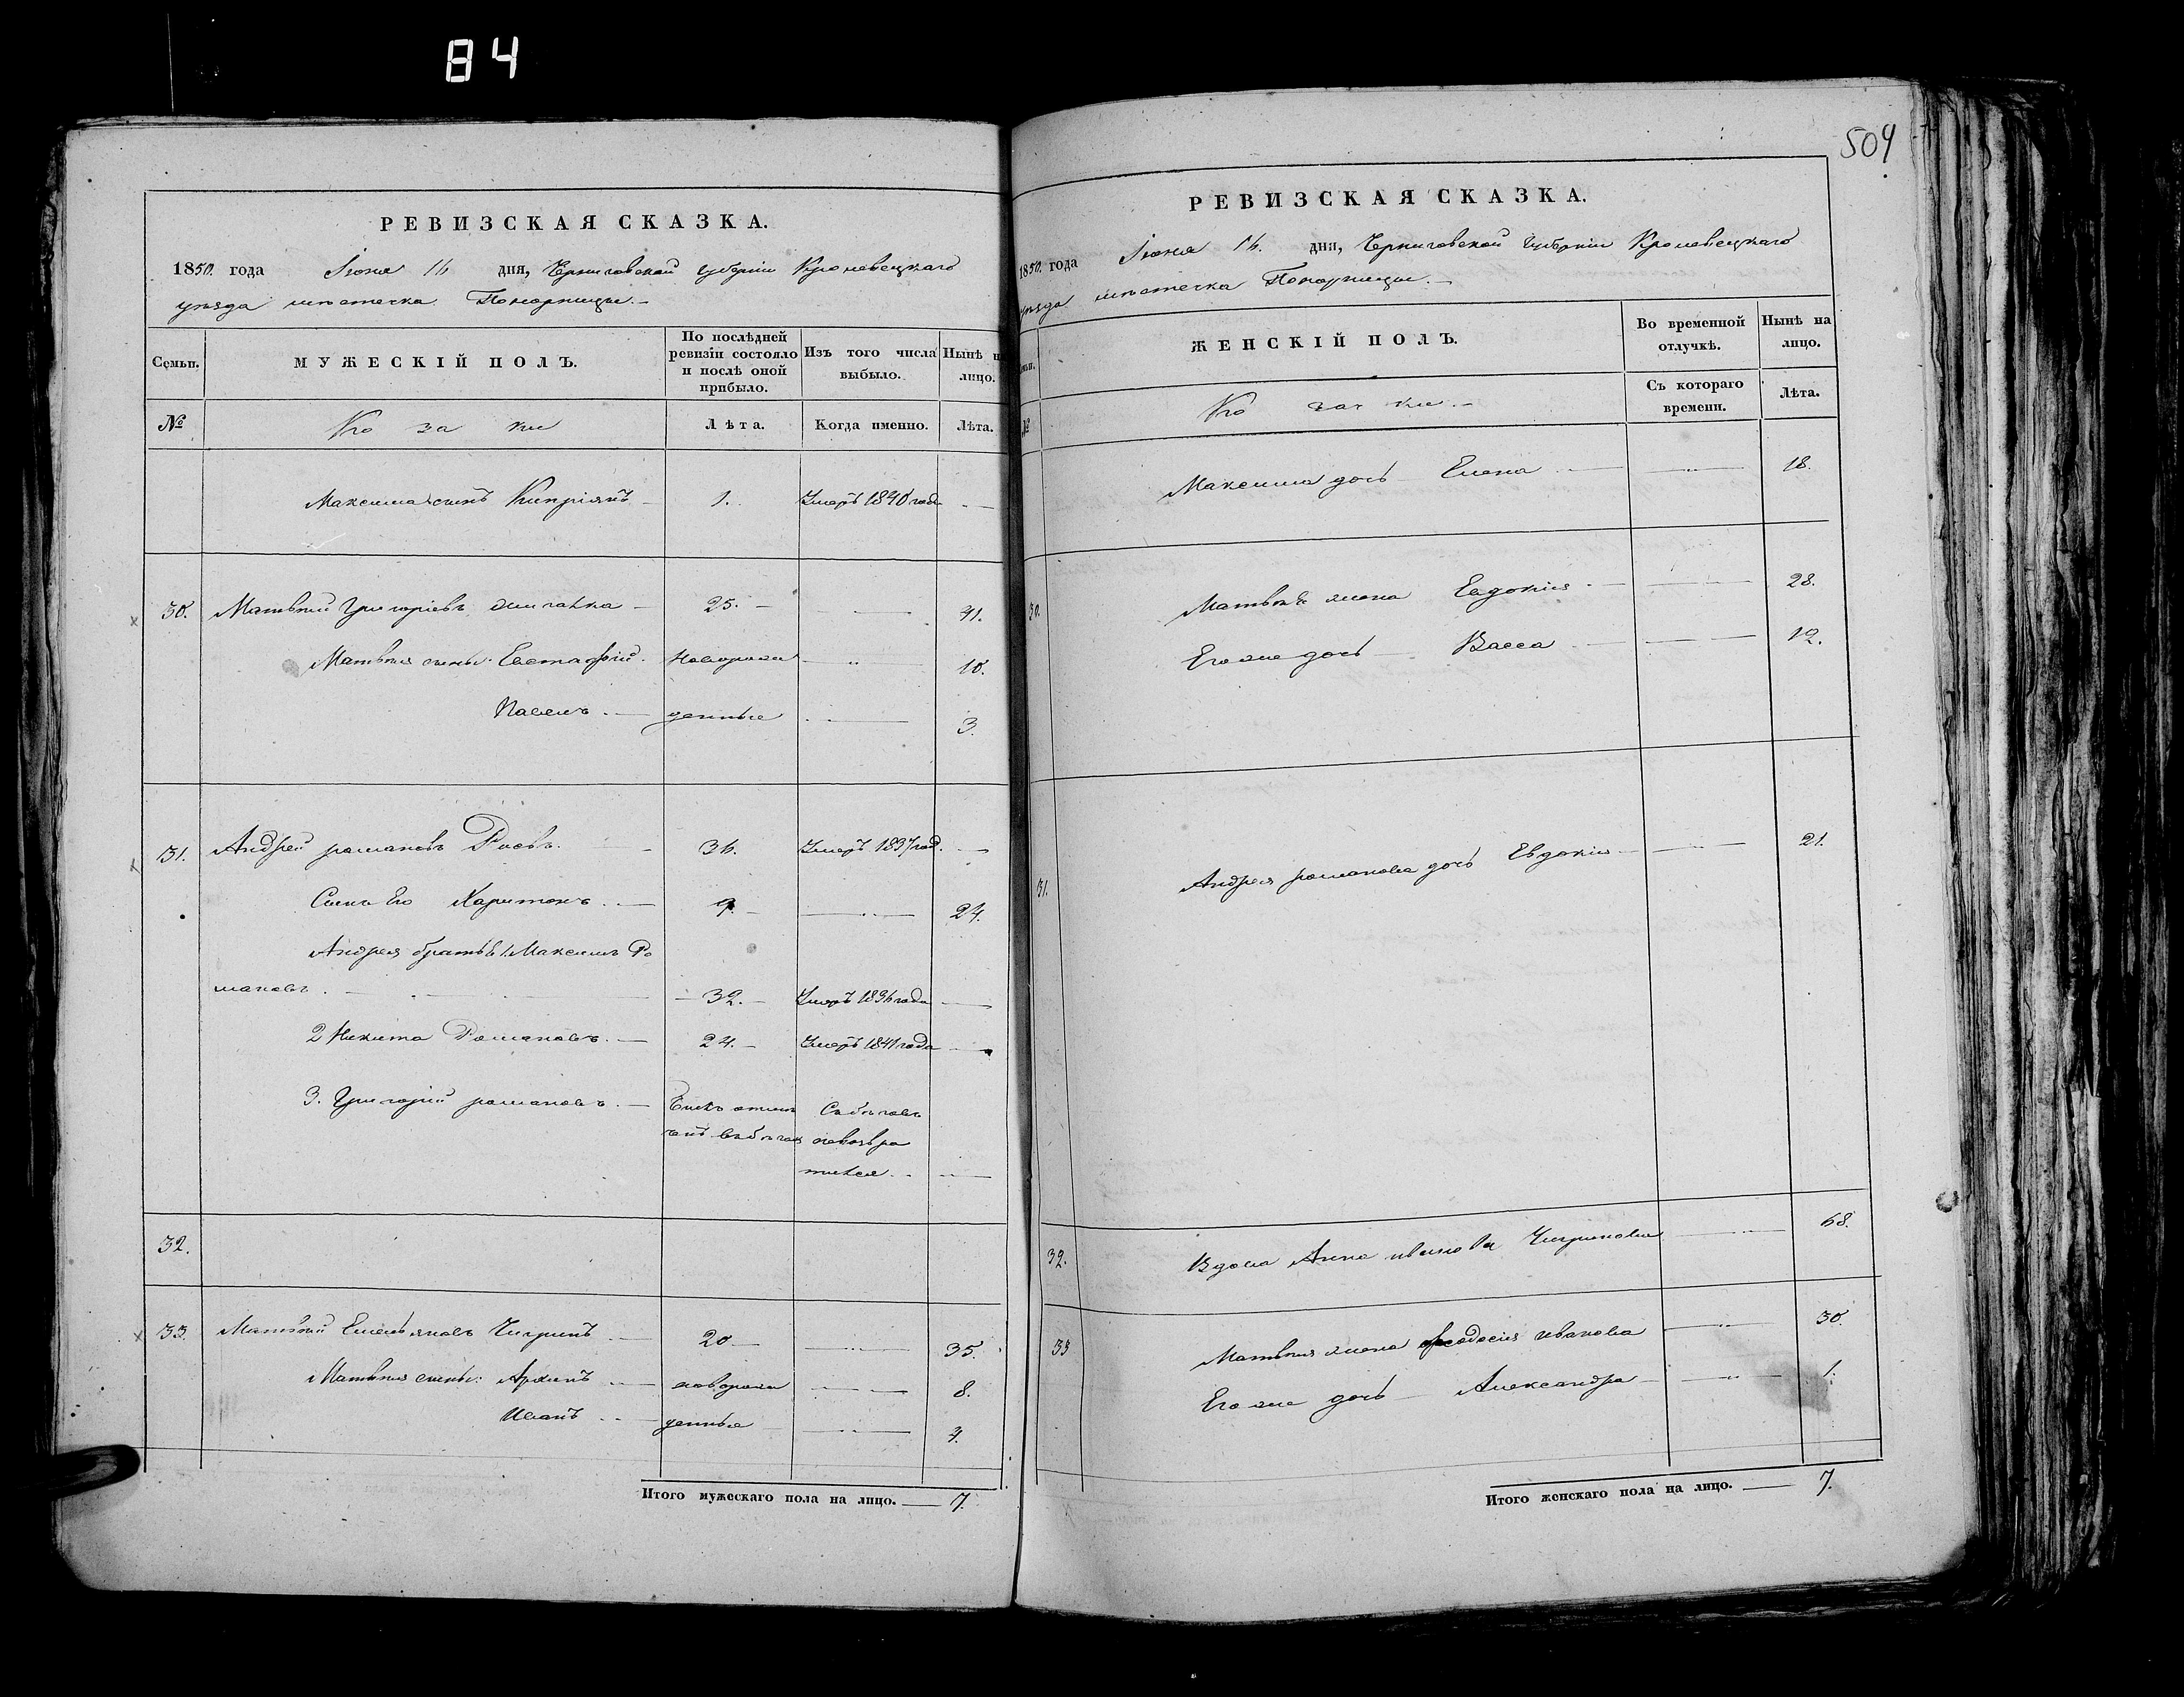 84
509
РЕВИЗСКАЯ СКАЗКА.
1850. года Іюня 16 дня, Черниговской губерніи Кролевецкаго
уѣзда мѣстечка Понорницы.
Семьи. МУЖЕСКІЙ ПОЛЪ. По послѣдней ревизіи состояло и послѣ оной прибыло. Изъ того числа выбыло. Нынѣ на лицо.
№ Козаки Лѣта. Когда именно. Лѣта.
Максима сынъ Кипріянъ 1. Умеръ 1840 года
30. Матвѣй Григоріевъ 25. 41.
Матвѣя сыны: Евстафій новорож 10.
Павелъ денные 3.
31. Андрей Романовъ 36. Умеръ 1837 год.
Сынъ Его Харитонъ 9. 24.
Андрея братья 1. Максимъ Ро
мановъ 32. Умеръ 1836 года
2 Никита Романовъ 24. Умеръ 1841 года
3. Григорій Романовъ Сбѣжавъ
невозвра
тился
32.
33. Матвѣй Емельяновъ Чигринъ 20 35.
Матвѣя сыны: Архипъ новорож 8.
Иванъ денные 4.
Итого мужескаго пола на лицо. 7.
РЕВИЗСКАЯ СКАЗКА.
1850. года Іюня 16. дня, Черниговской губерніи Кролевецкаго
уѣзда мѣстечка Понорницы.
Семьи. ЖЕНСКІЙ ПОЛЪ. Во временной отлучкѣ. Нынѣ на лицо.
№ Козаки. Съ котораго времени. Лѣта.
Максима дочь Елена 18.
30. Матвѣя жена Евдокія 28.
Его же дочь Васса 12.
31. Андрея Романова дочь Евдокія 21.
32. Вдова Анна Иванова Чигринова 68.
33 Матвѣя жена Феодосія Иванова 30.
Его же дочь Александра 1.
Итого женскаго пола на лицо. 7.